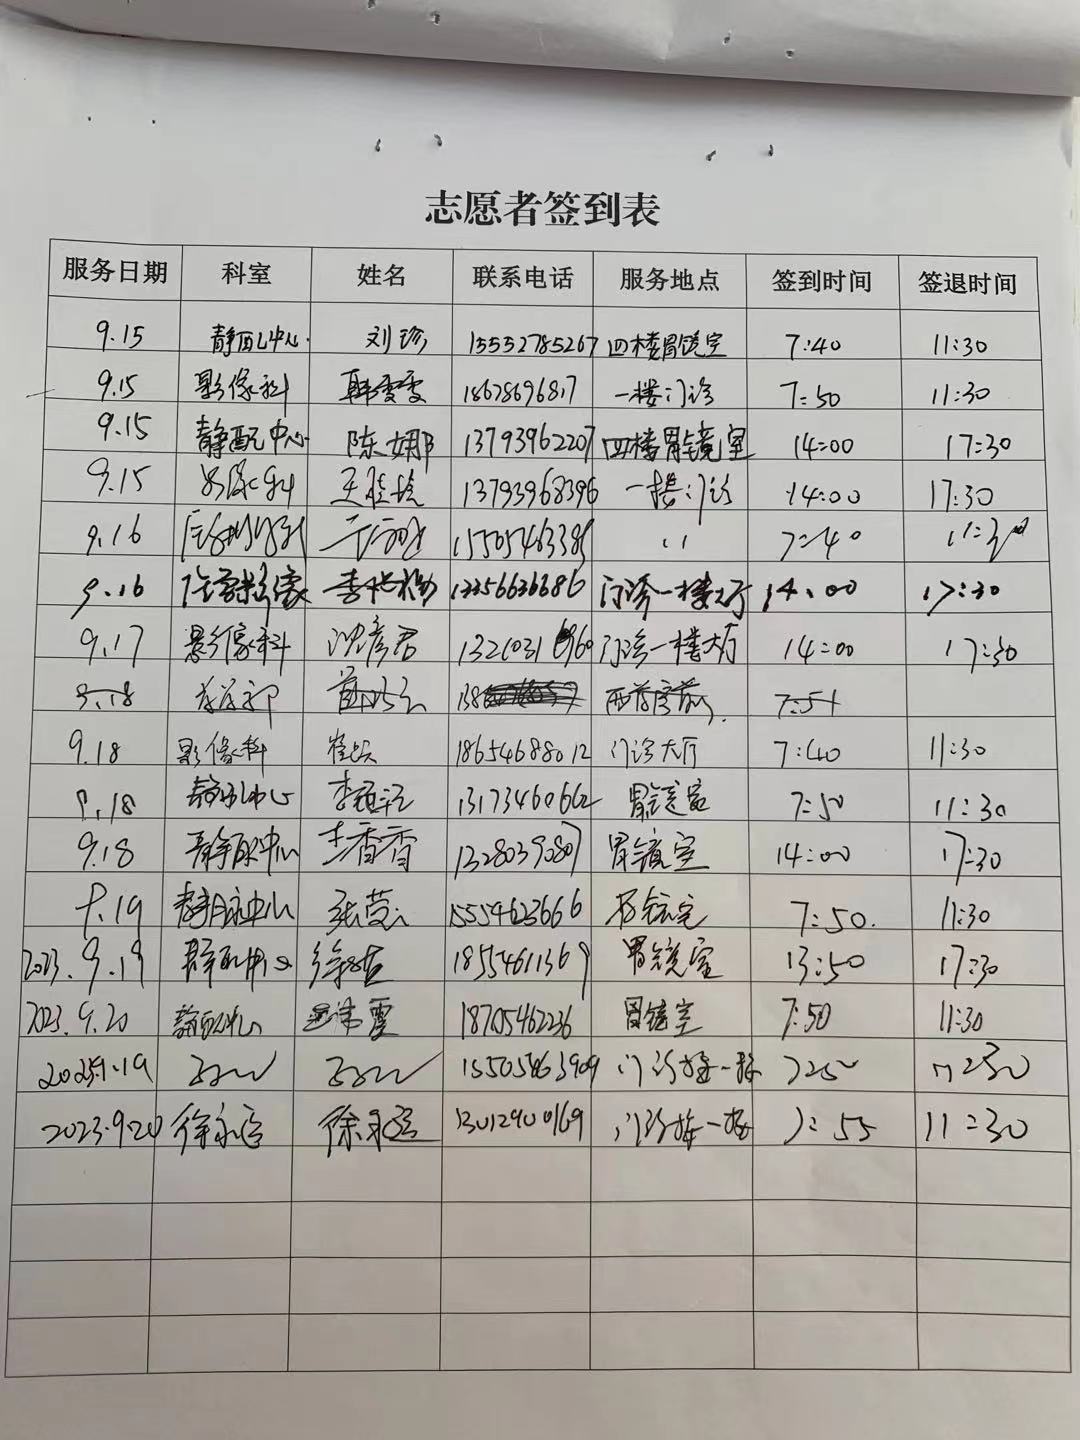 志愿者签到表
服务日期 科室 姓名 联系电话 服务地点 签到时间 签退时间
9.15 静配中心 刘珍 15552785267 四楼胃镜室 7:40 11:30
9.15 影像科 韩雯雯 18678696817 一楼门诊 7:50 11:30
9.15 静配中心 陈娜 13793962207 四楼胃镜室 14:00 17:30
9.15 影像科 13793968396 一楼门诊 14:00 17:30
9.16 7:40 11:30
9.16 13356636686 门诊一楼大厅 14:00 17:30
9.17 影像科 沈彦君 门诊一楼大厅 14:00 17:30
9.18 7:51
9.18 影像科 18654688012 门诊大厅 7:40 11:30
9.18 静配中心 13173460662 胃镜室 7:50 11:30
9.18 静脉中心 李香香 13280390807 胃镜室 14:00 17:30
9.19 静脉中心 张莹 15554623666 胃镜室 7:50. 11:30
2023.9.19 静配中心 18554611369 胃镜室 13:50 17:30
2023.9.20 静配中心 18705462236 胃镜室 7:50 11:30
15505463909 门诊楼一楼
2023.9.20 徐永 徐永 13012900169 门诊楼一楼 7:55 11:30